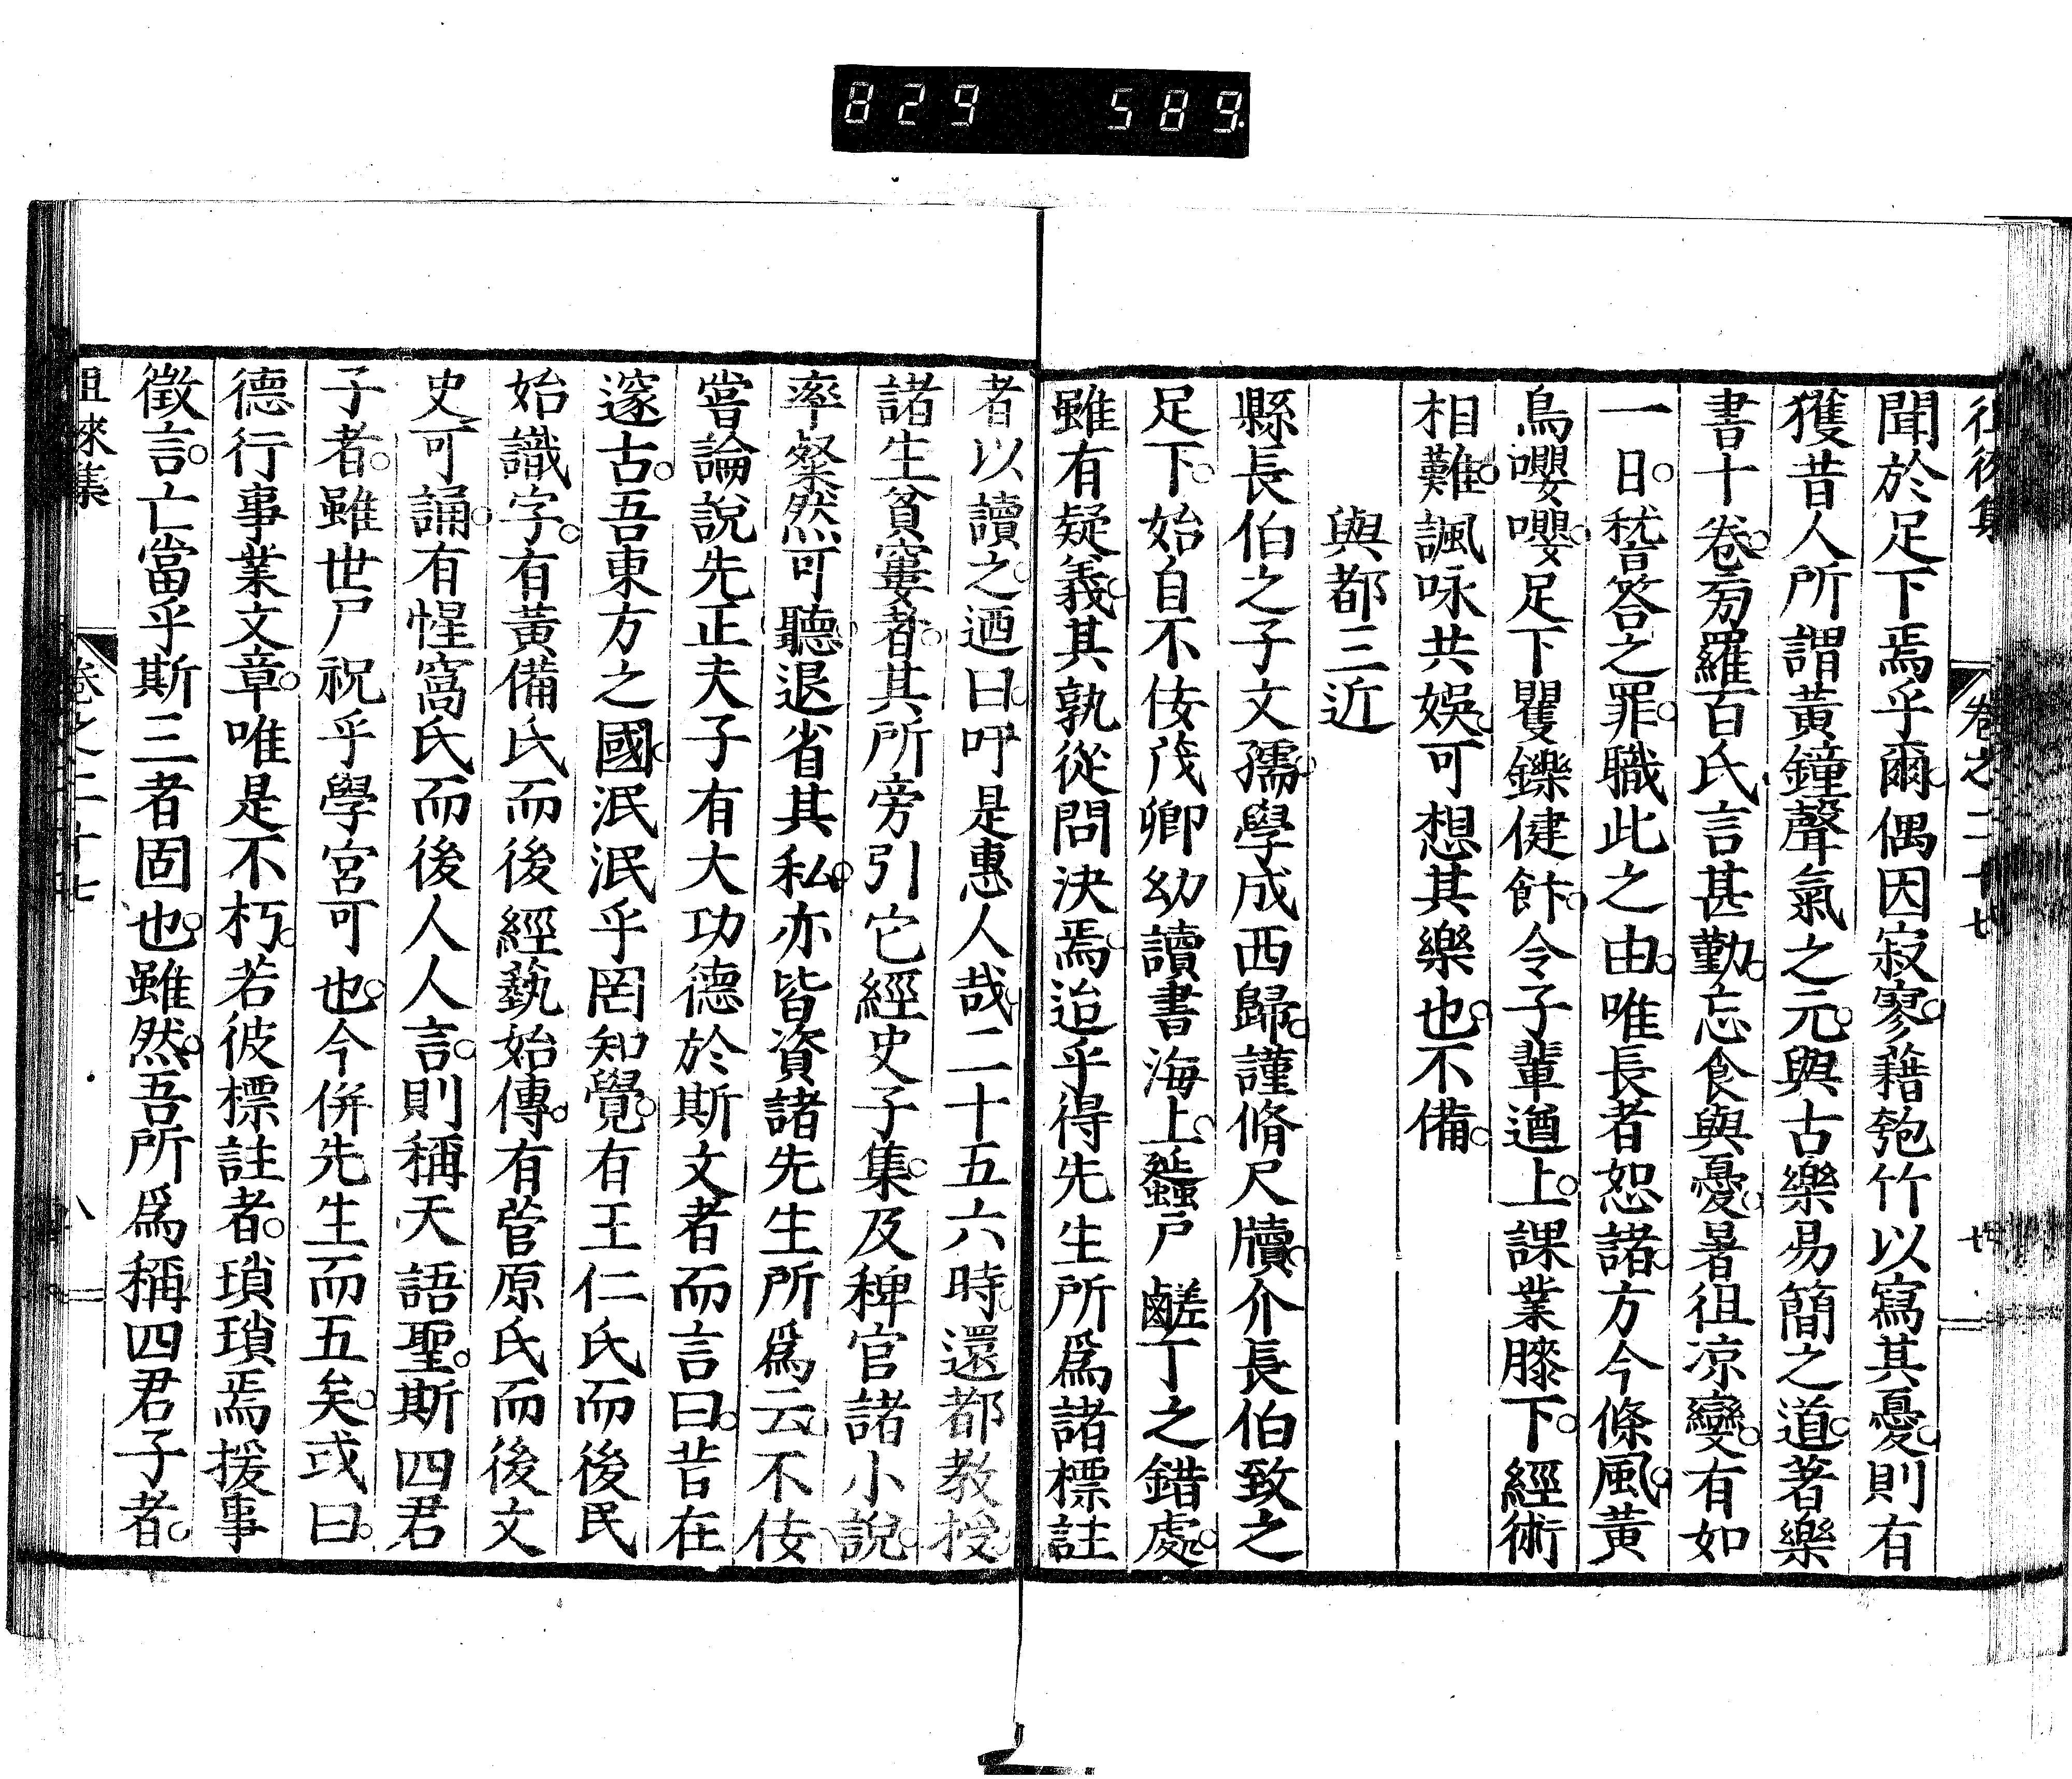 829 589
徂徠集 卷之二十七 七
聞於足下焉乎爾偶因寂寥藉匏竹以寫其憂則有
獲昔人所謂黃鐘聲氣之元與古樂易簡之道著樂
書十卷旁羅百氏言甚勤忘食與憂暑徂凉變有如
一日嵇答之罪職此之由唯長者恕諸方今條風黃
鳥嚶嚶足下矍鑠健飰令子輩遒上課業膝下經術
相難諷咏共娛可想其樂也不備
與都三近
縣長伯之子文孺學成西歸謹脩尺牘介長伯致之
足下始自不佞茂卿幼讀書海上蜑戶鹺丁之錯處
雖有疑義其孰從問決焉迨乎得先生所爲諸標註
者以讀之迺曰吁是惠人哉二十五六時還都教授
諸生貧窶者其所旁引它經史子集及稗官諸小說
率粲然可聽退省其私亦皆資諸先生所爲云不佞
嘗論說先正夫子有大功德於斯文者而言曰昔在
邃古吾東方之國泯泯乎罔知覺有王仁氏而後民
始識字有黃備氏而後經藝始傳有菅原氏而後文
史可誦有惺窩氏而後人人言則稱天語聖斯四君
子者雖世尸祝乎學宮可也今併先生而五矣或曰
德行事業文章唯是不朽若彼標註者瑣瑣焉援事
徵言亡當乎斯三者固也雖然吾所爲稱四君子者
徂徠集 卷之二十七 八